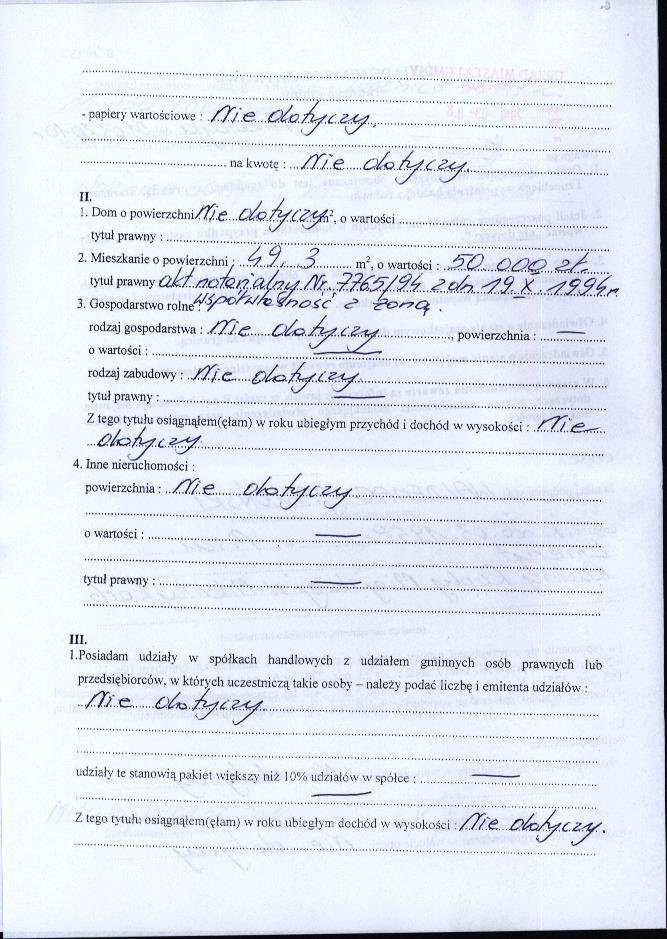 - papiery wartościowe : Nie dotyczy.
na kwotę : Nie dotyczy.
II.
1. Dom o powierzchni Nie dotyczy m², o wartości
tytuł prawny :
2. Mieszkanie o powierzchni : 49, 3 m², o wartości : 50 000 zł.
tytuł prawny akt notarialny Nr. 7765/94 z dn. 19 X . 1994 r
współwłasność z żoną.
3. Gospodarstwo rolne :
rodzaj gospodarstwa : Nie dotyczy , powierzchnia : —
o wartości : —
rodzaj zabudowy : Nie dotyczy
tytuł prawny : —
Z tego tytułu osiągnąłem(ęłam) w roku ubiegłym przychód i dochód w wysokości : Nie
dotyczy
4. Inne nieruchomości :
powierzchnia : Nie dotyczy
o wartości : —
tytuł prawny : —
III.
1.Posiadam udziały w spółkach handlowych z udziałem gminnych osób prawnych lub
przedsiębiorców, w których uczestniczą takie osoby – należy podać liczbę i emitenta udziałów :
Nie dotyczy
udziały te stanowią pakiet większy niż 10% udziałów w spółce : —
—
Z tego tytułu osiągnąłem(ęłam) w roku ubiegłym dochód w wysokości : Nie dotyczy.